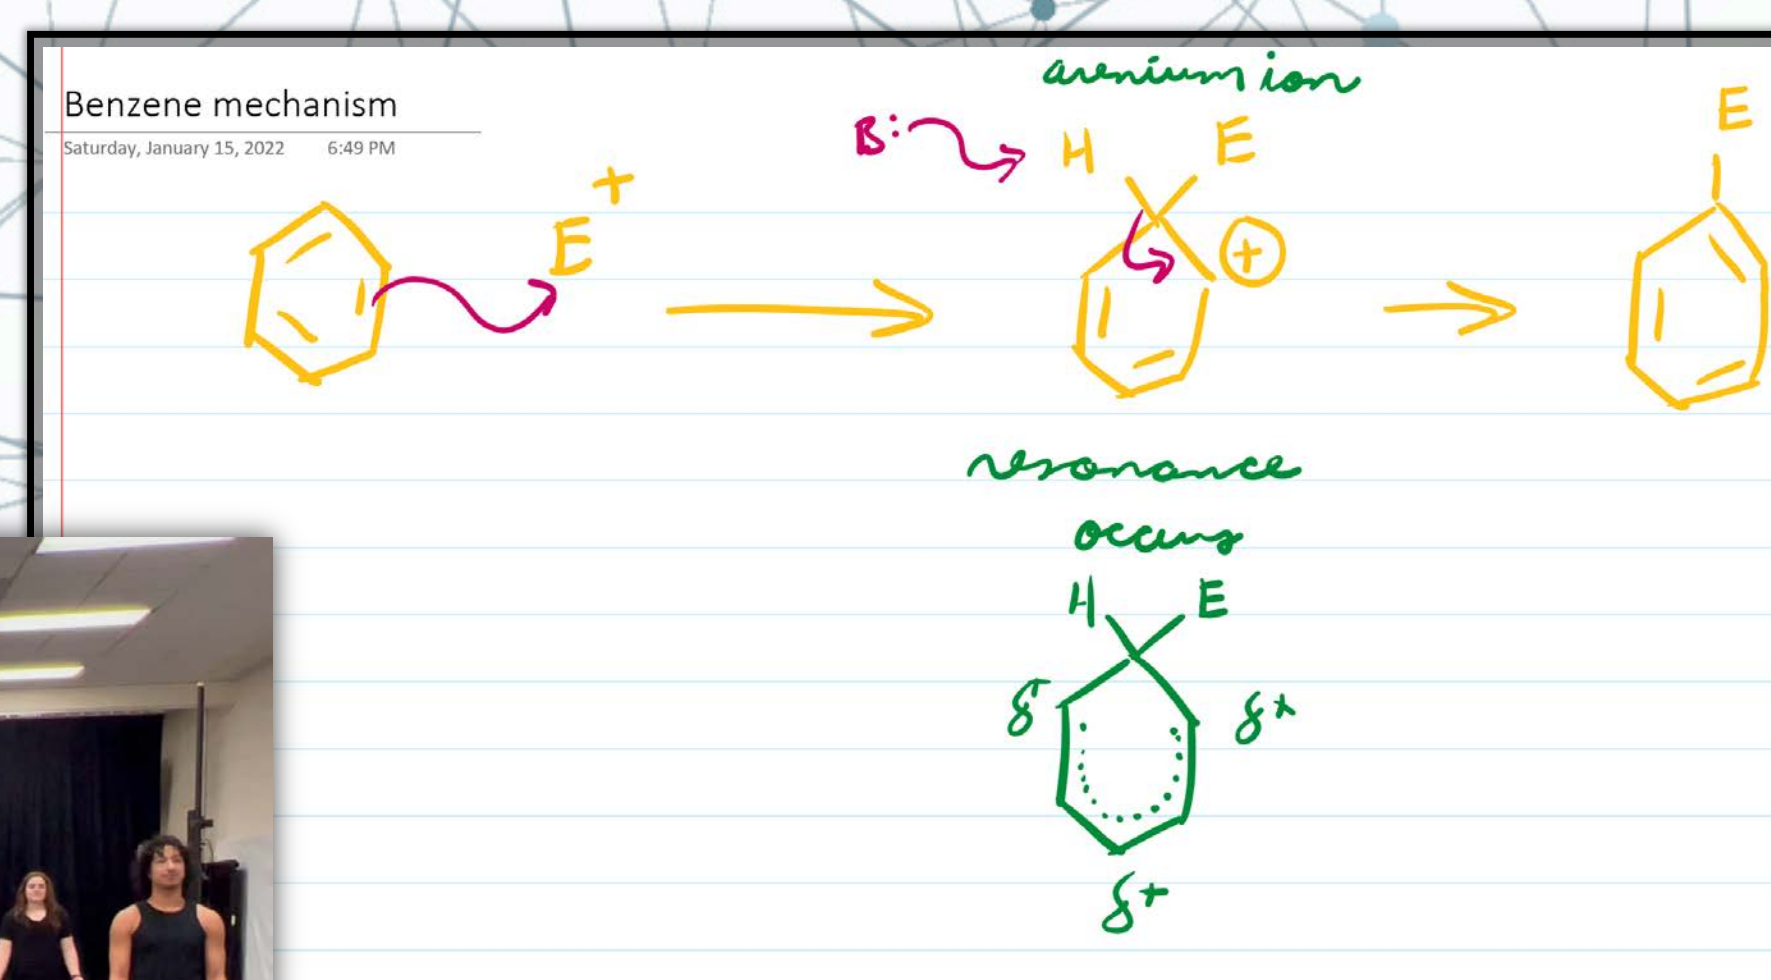 Benzene mechanism
Saturday, January 15, 2022 6:49 PM
arenium ion
B: H E E
E+
+
resonance
occurs
H E
δ+ δ+
δ+